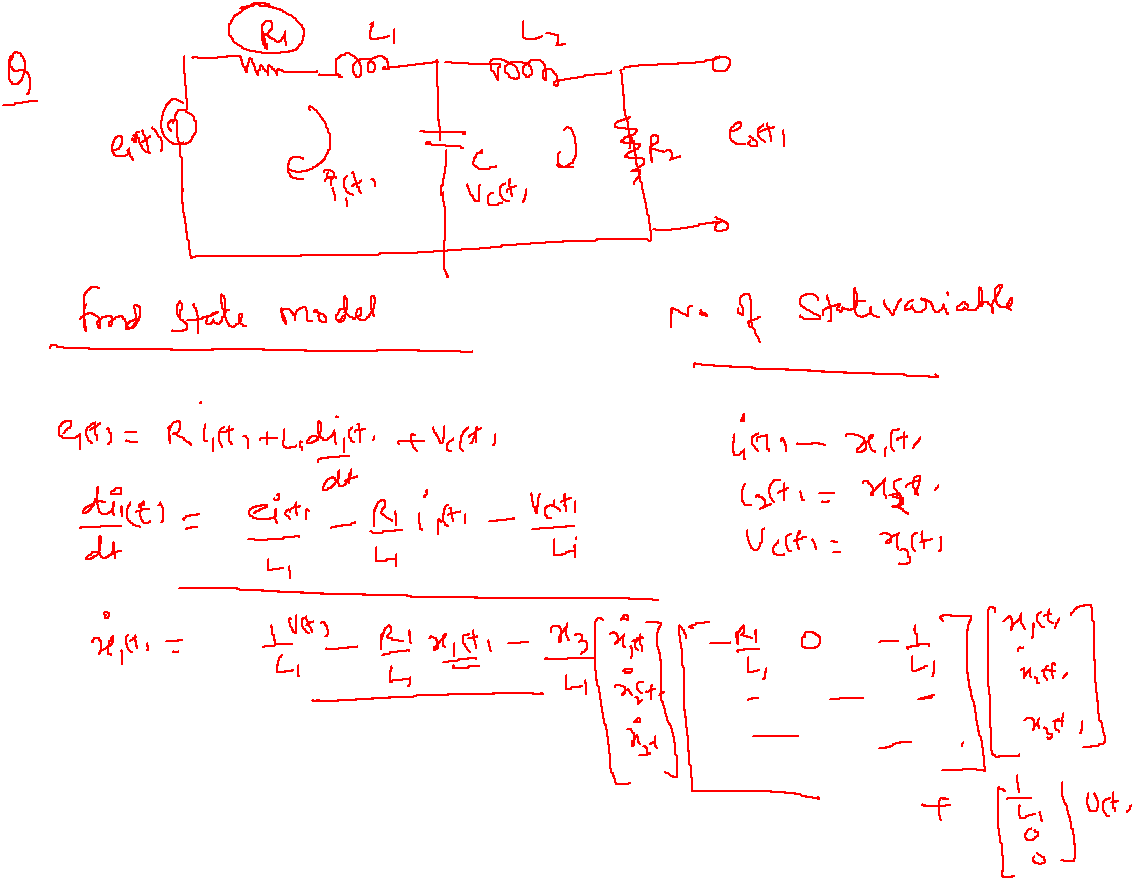 Q
R1 L1 L2
ei(t) i1(t) C Vc(t) R2 eo(t)
find state model
No of State variable
ei(t) = R i1(t) + L1 di1(t)/dt + Vc(t)
i1(t) - x1(t)
di1(t)/dt = ei(t)/L1 - R1/L1 i1(t) - Vc(t)/L1
i2(t) = x2(t)
Vc(t) = x3(t)
ẋ1(t) = 1/L1 U(t) - R1/L1 x1(t) - x3/L1
[ẋ1(t) ẋ2(t) ẋ3t] [-R1/L1 0 -1/L1 - - - - - .] [x1(t) x2(t) x3(t)]
+ [1/L1 0 0] U(t)